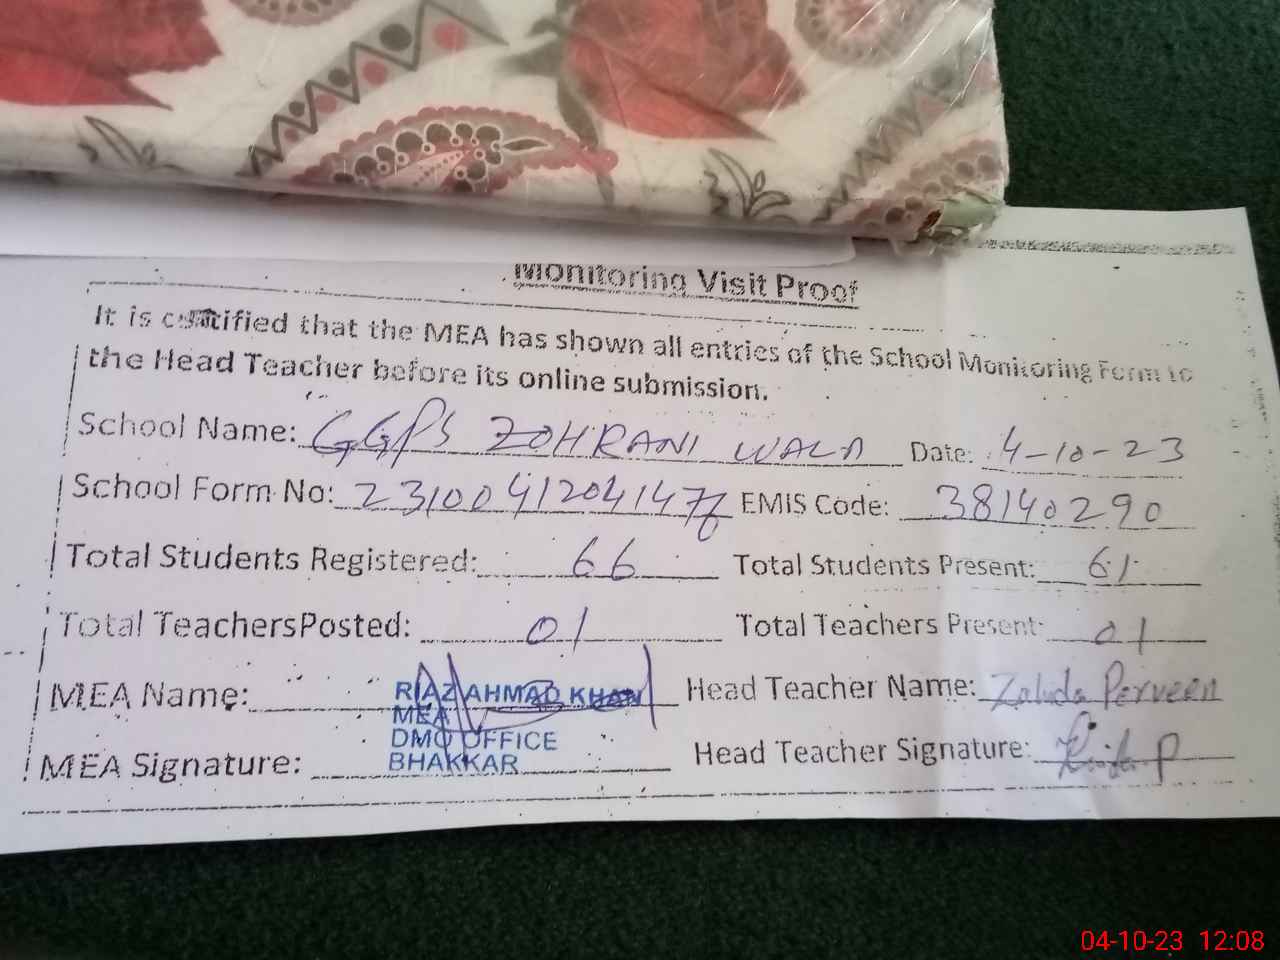 Monitoring Visit Proof
It is certified that the MEA has shown all entries of the School Monitoring Form to
the Head Teacher before its online submission.
School Name: GGPS ZOHRANI WALA Date: 4-10-23
School Form No: EMIS Code: 38140290
Total Students Registered: 66 Total Students Present: 61
Total TeachersPosted: 01 Total Teachers Present: 01
MEA Name: RIAZ AHMAD KHAN Head Teacher Name: Zahida Perveen
MEA
DMO OFFICE
BHAKKAR
MEA Signature: Head Teacher Signature:
04-10-23 12:08